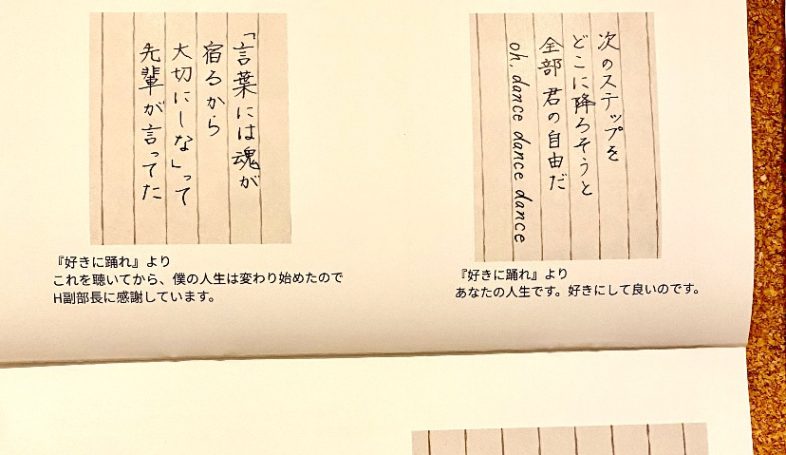 次のステップを
どこに降ろそうと
全部 君の自由だ
oh, dance dance dance
『好きに踊れ』より
あなたの人生です。好きにして良いのです。
「言葉には魂が
宿るから
大切にしな」って
先輩が言ってた
『好きに踊れ』より
これを聴いてから、僕の人生は変わり始めたので
H副部長に感謝しています。